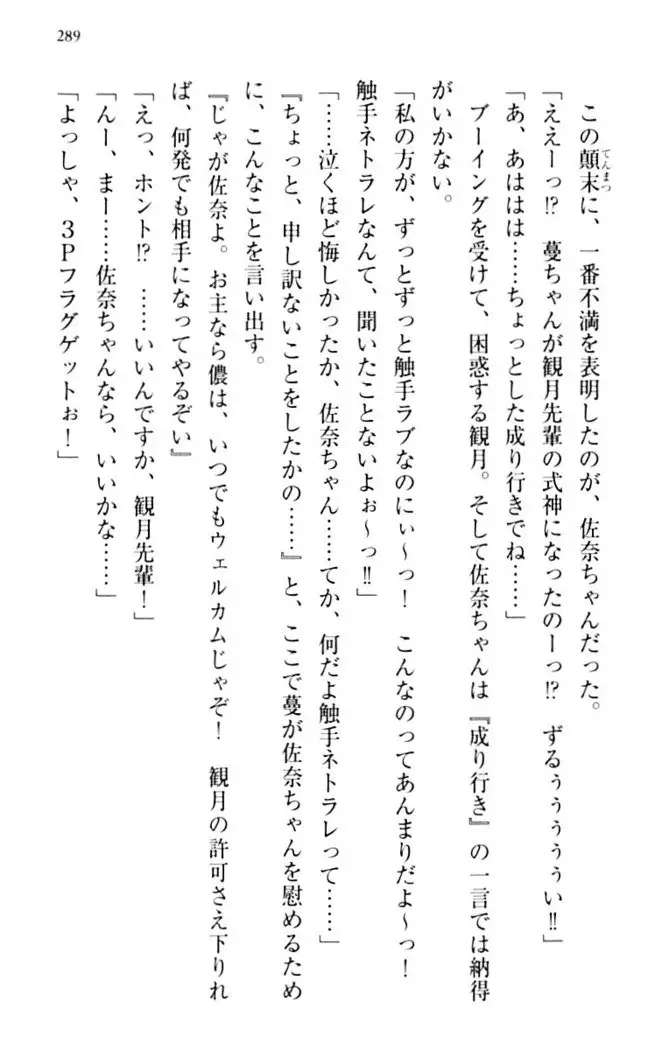 289
この顛末に、一番不満を表明したのが、佐奈ちゃんだった。
てんまつ
「ええーっ!?　蔓ちゃんが観月先輩の式神になったのーっ!?　ずるぅぅぅぅぅい!!」
「あ、あははは……ちょっとした成り行きでね……」
ブーイングを受けて、困惑する観月。そして佐奈ちゃんは『成り行き』の一言では納得
がいかない。
「私の方が、ずっとずっと触手ラブなのにぃ～っ！　こんなのってあんまりだよ～っ！
触手ネトラレなんて、聞いたことないよぉ～っ!!」
「……泣くほど悔しかったか、佐奈ちゃん……てか、何だよ触手ネトラレって……」
『ちょっと、申し訳ないことをしたかの……』と、ここで蔓が佐奈ちゃんを慰めるため
に、こんなことを言い出す。
『じゃが佐奈よ。お主なら儂は、いつでもウェルカムじゃぞ！　観月の許可さえ下りれ
ば、何発でも相手になってやるぞい』
「えっ、ホント!?　……いいんですか、観月先輩！」
「んー、まー……佐奈ちゃんなら、いいかな……」
「よっしゃ、３Ｐフラグゲットぉ！」